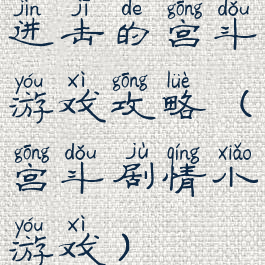 jìn jī de gōng dǒu
进击的宫斗
yóu xì gōng lüè
游戏攻略（
gōng dǒu jù qíng xiǎo
宫斗剧情小
yóu xì
游戏）